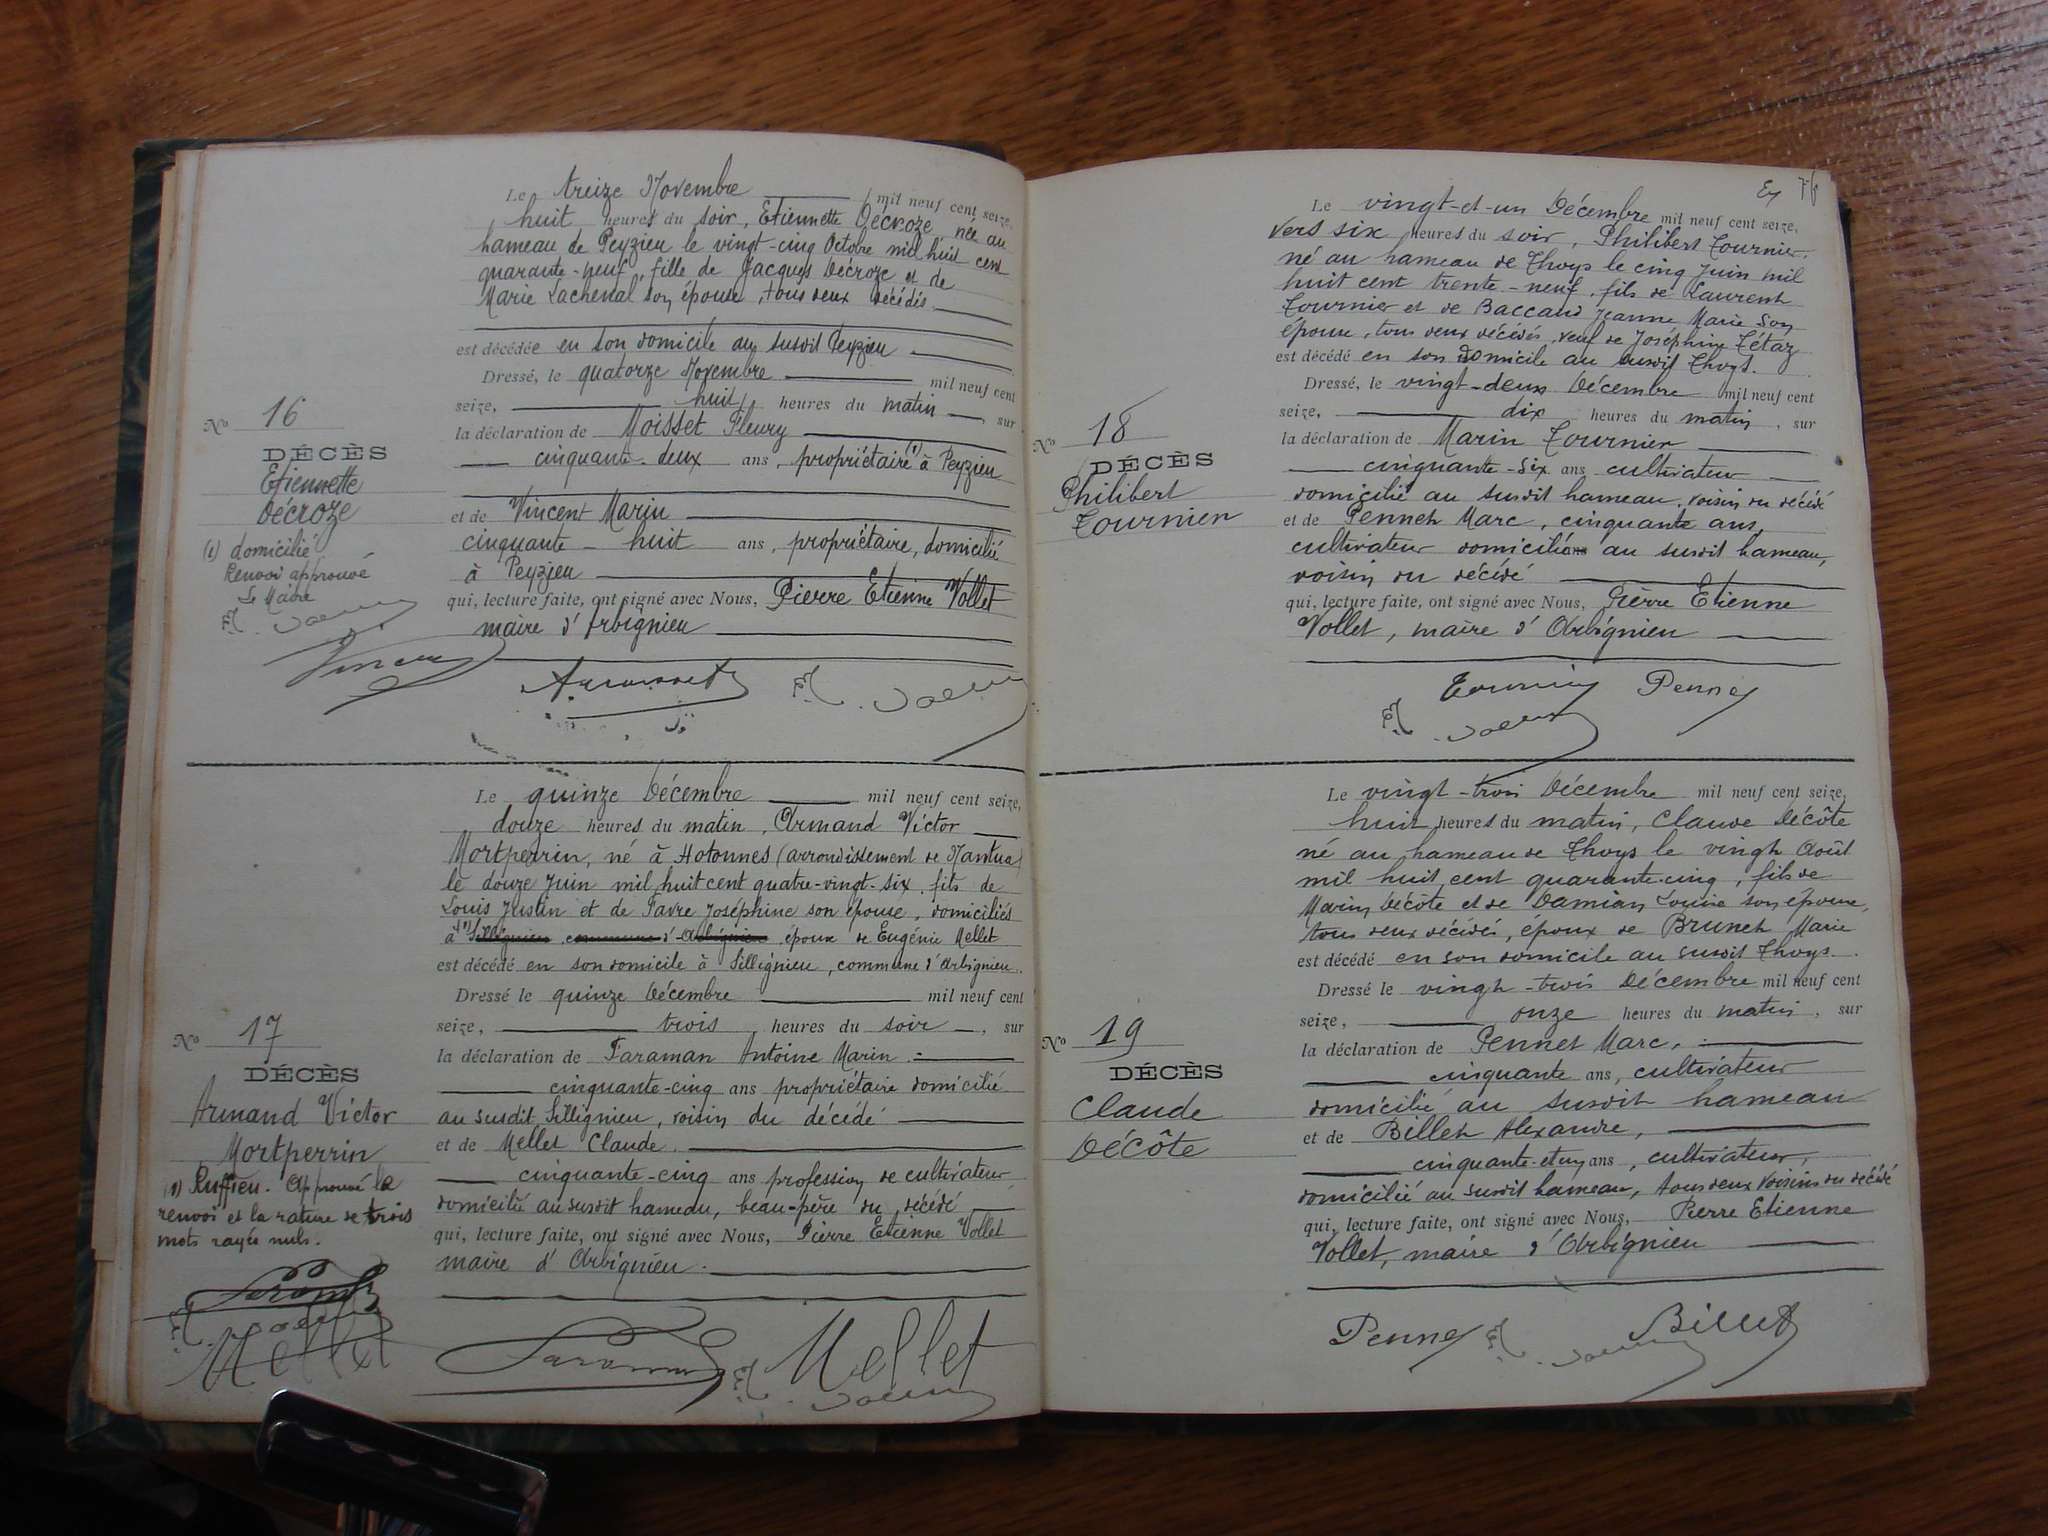 Le treize Novembre mil neuf cent seize,
huit heures du soir, Etiennette Décroze, née au
hameau de Peyzieu le vingt-cinq Octobre mil huit cent
quarante-neuf, fille de Jacques Décroze et de
Marie Lachenal son épouse, tous deux décédés.
est décédée en son domicile au susdit Peyzieu
Dressé, le quatorze Novembre mil neuf cent
seize, huit heures du matin, sur
la déclaration de Moisset Fleury
cinquante-deux ans, propriétaire (1) à Peyzieu
et de Vincent Marin
cinquante-huit ans, propriétaire, domicilié
à Peyzieu
qui, lecture faite, ont signé avec Nous, Pierre Etienne Vollet
maire d'Arbignieu
No 16
DÉCÈS
Etiennette
Décroze
(1) domicilié
Renvoi approuvé
Le Maire
Vincent
Le quinze Décembre mil neuf cent seize,
douze heures du matin, Armand Victor
Mortperrin, né à Hotonnes (arrondissement de Nantua)
le douze Juin mil huit cent quatre-vingt-six, fils de
Louis Justin et de Favre Joséphine son épouse, domiciliés
à (1) Sillignieu commune d'Arbignieu époux de Eugénie Mellet
est décédé en son domicile à Sillignieu, commune d'Arbignieu.
Dressé le quinze Décembre mil neuf cent
seize, trois heures du soir, sur
la déclaration de Faraman Antoine Marin
cinquante-cinq ans propriétaire domicilié
au susdit Sillignieu, voisin du décédé
et de Mellet Claude
cinquante-cinq ans profession de cultivateur
domicilié au susdit hameau, beau-père du décédé
qui, lecture faite, ont signé avec Nous, Pierre Etienne Vollet
maire d'Arbignieu.
No 17
DÉCÈS
Armand Victor
Mortperrin
(1) Ruffieu. Approuvé le
renvoi et la rature de trois
mots rayés nuls.
Mellet
Mellet
76
Le vingt-et-un Décembre mil neuf cent seize,
vers six heures du soir, Philibert Tournier,
né au hameau de Thoys le cinq Juin mil
huit cent trente-neuf, fils de Laurent
Tournier et de Baccard Jeanne Marie son
épouse, tous deux décédés, veuf de Joséphine Tétaz
est décédé en son domicile au susdit Thoys.
Dressé, le vingt-deux Décembre mil neuf cent
seize, dix heures du matin, sur
la déclaration de Marin Tournier
cinquante-six ans cultivateur
domicilié au susdit hameau, voisin du décédé
et de Pennet Marc, cinquante ans,
cultivateur domicilié au susdit hameau,
voisin du décédé
qui, lecture faite, ont signé avec Nous, Pierre Etienne
Vollet, maire d'Arbignieu
No 18
DÉCÈS
Philibert
Tournier
Pennet
Le vingt-trois Décembre mil neuf cent seize,
huit heures du matin, Claude Décôte
né au hameau de Thoys le vingt Août
mil huit cent quarante-cinq, fils de
Marin Décôte et de Damian Louise son épouse,
tous deux décédés, époux de Brunet Marie
est décédé en son domicile au susdit Thoys.
Dressé le vingt-trois Décembre mil neuf cent
seize, onze heures du matin, sur
la déclaration de Pennet Marc,
cinquante ans, cultivateur
domicilié au susdit hameau
et de Billet Alexandre,
cinquante-et-un ans, cultivateur,
domicilié au susdit hameau, tous deux voisins du décédé
qui, lecture faite, ont signé avec Nous, Pierre Etienne
Vollet, maire d'Arbignieu
No 19
DÉCÈS
Claude
Décôte
Pennet Billet